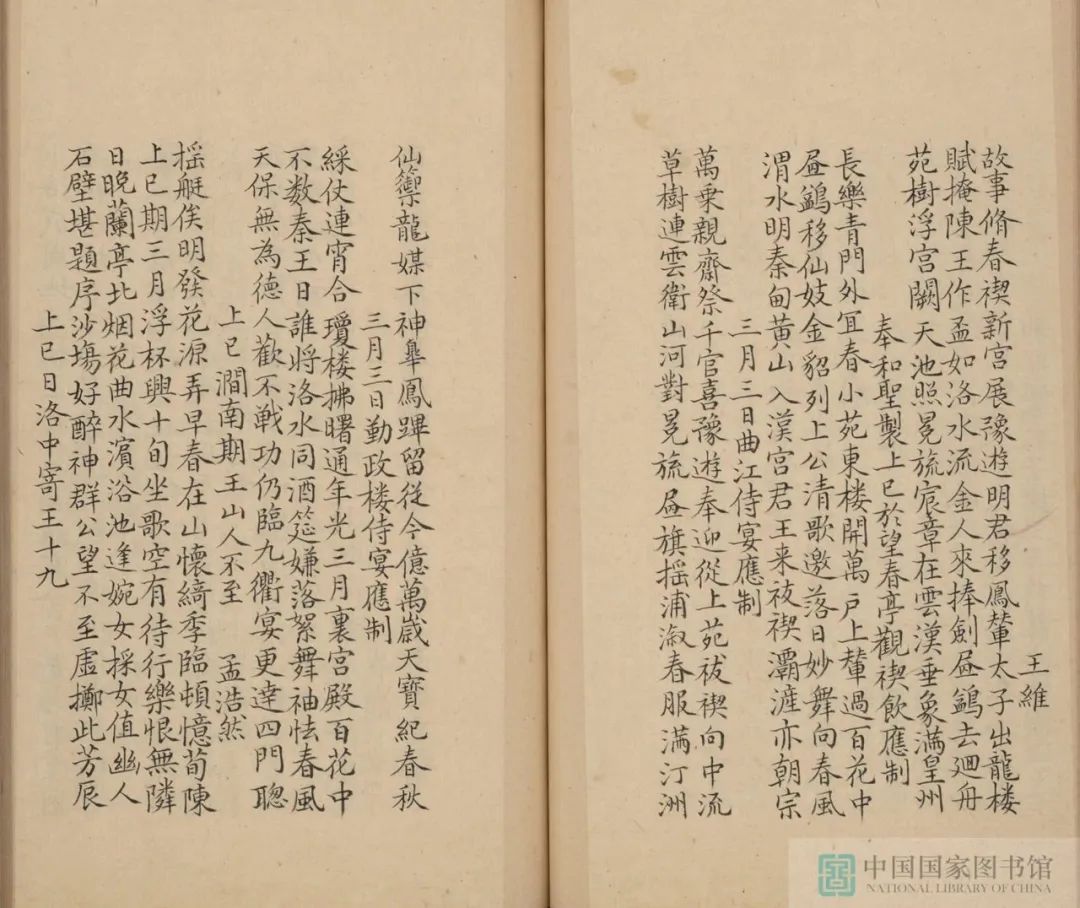 王維
故事脩春禊新宮展豫遊明君移鳳輦太子出龍楼
賦掩陳王作盃如洛水流金人來捧劍昼鷁去廻舟
苑樹浮宮闕天池照冕旒宸章在雲漢垂象滿皇州
奉和聖製上巳於望春亭觀禊飲應制
長樂青門外宜春小苑東楼開萬戶上輦過百花中
昼鷁移仙妓金貂列上公清歌邀落日妙舞向春風
渭水明秦甸黃山入漢宮君王来祓禊灞滻亦朝宗
三月三日曲江侍宴應制
萬乗親齋祭千官喜豫遊奉迎從上苑祓禊向中流
草樹連雲衛山河對冕旒昼旗揺浦溆春服滿汀洲
仙籞龍媒下神臯鳳蹕留從今億萬歲天寶紀春秋
三月三日勤政楼侍宴應制
綵仗連宵合瓊楼拂曙通年光三月裏宮殿百花中
不数秦王日誰將洛水同酒筵嫌落絮舞袖怯春風
天保無為德人歡不戦功仍臨九衢宴更達四門聰
上巳澗南期王山人不至 孟浩然
揺艇俟明發花源弄早春在山懷綺季臨頓憶荀陳
上巳期三月浮杯興十旬坐歌空有待行樂恨無隣
日晚蘭亭北烟花曲水濵浴池逢婉女採女值幽人
石壁堪題序沙塲好醉神群公望不至虛擲此芳辰
上巳日洛中寄王十九
中国国家图书馆
NATIONAL LIBRARY OF CHINA